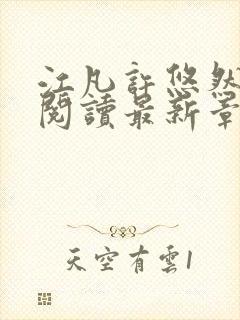 江凡許悠然
閱讀最新章
天空有雲1